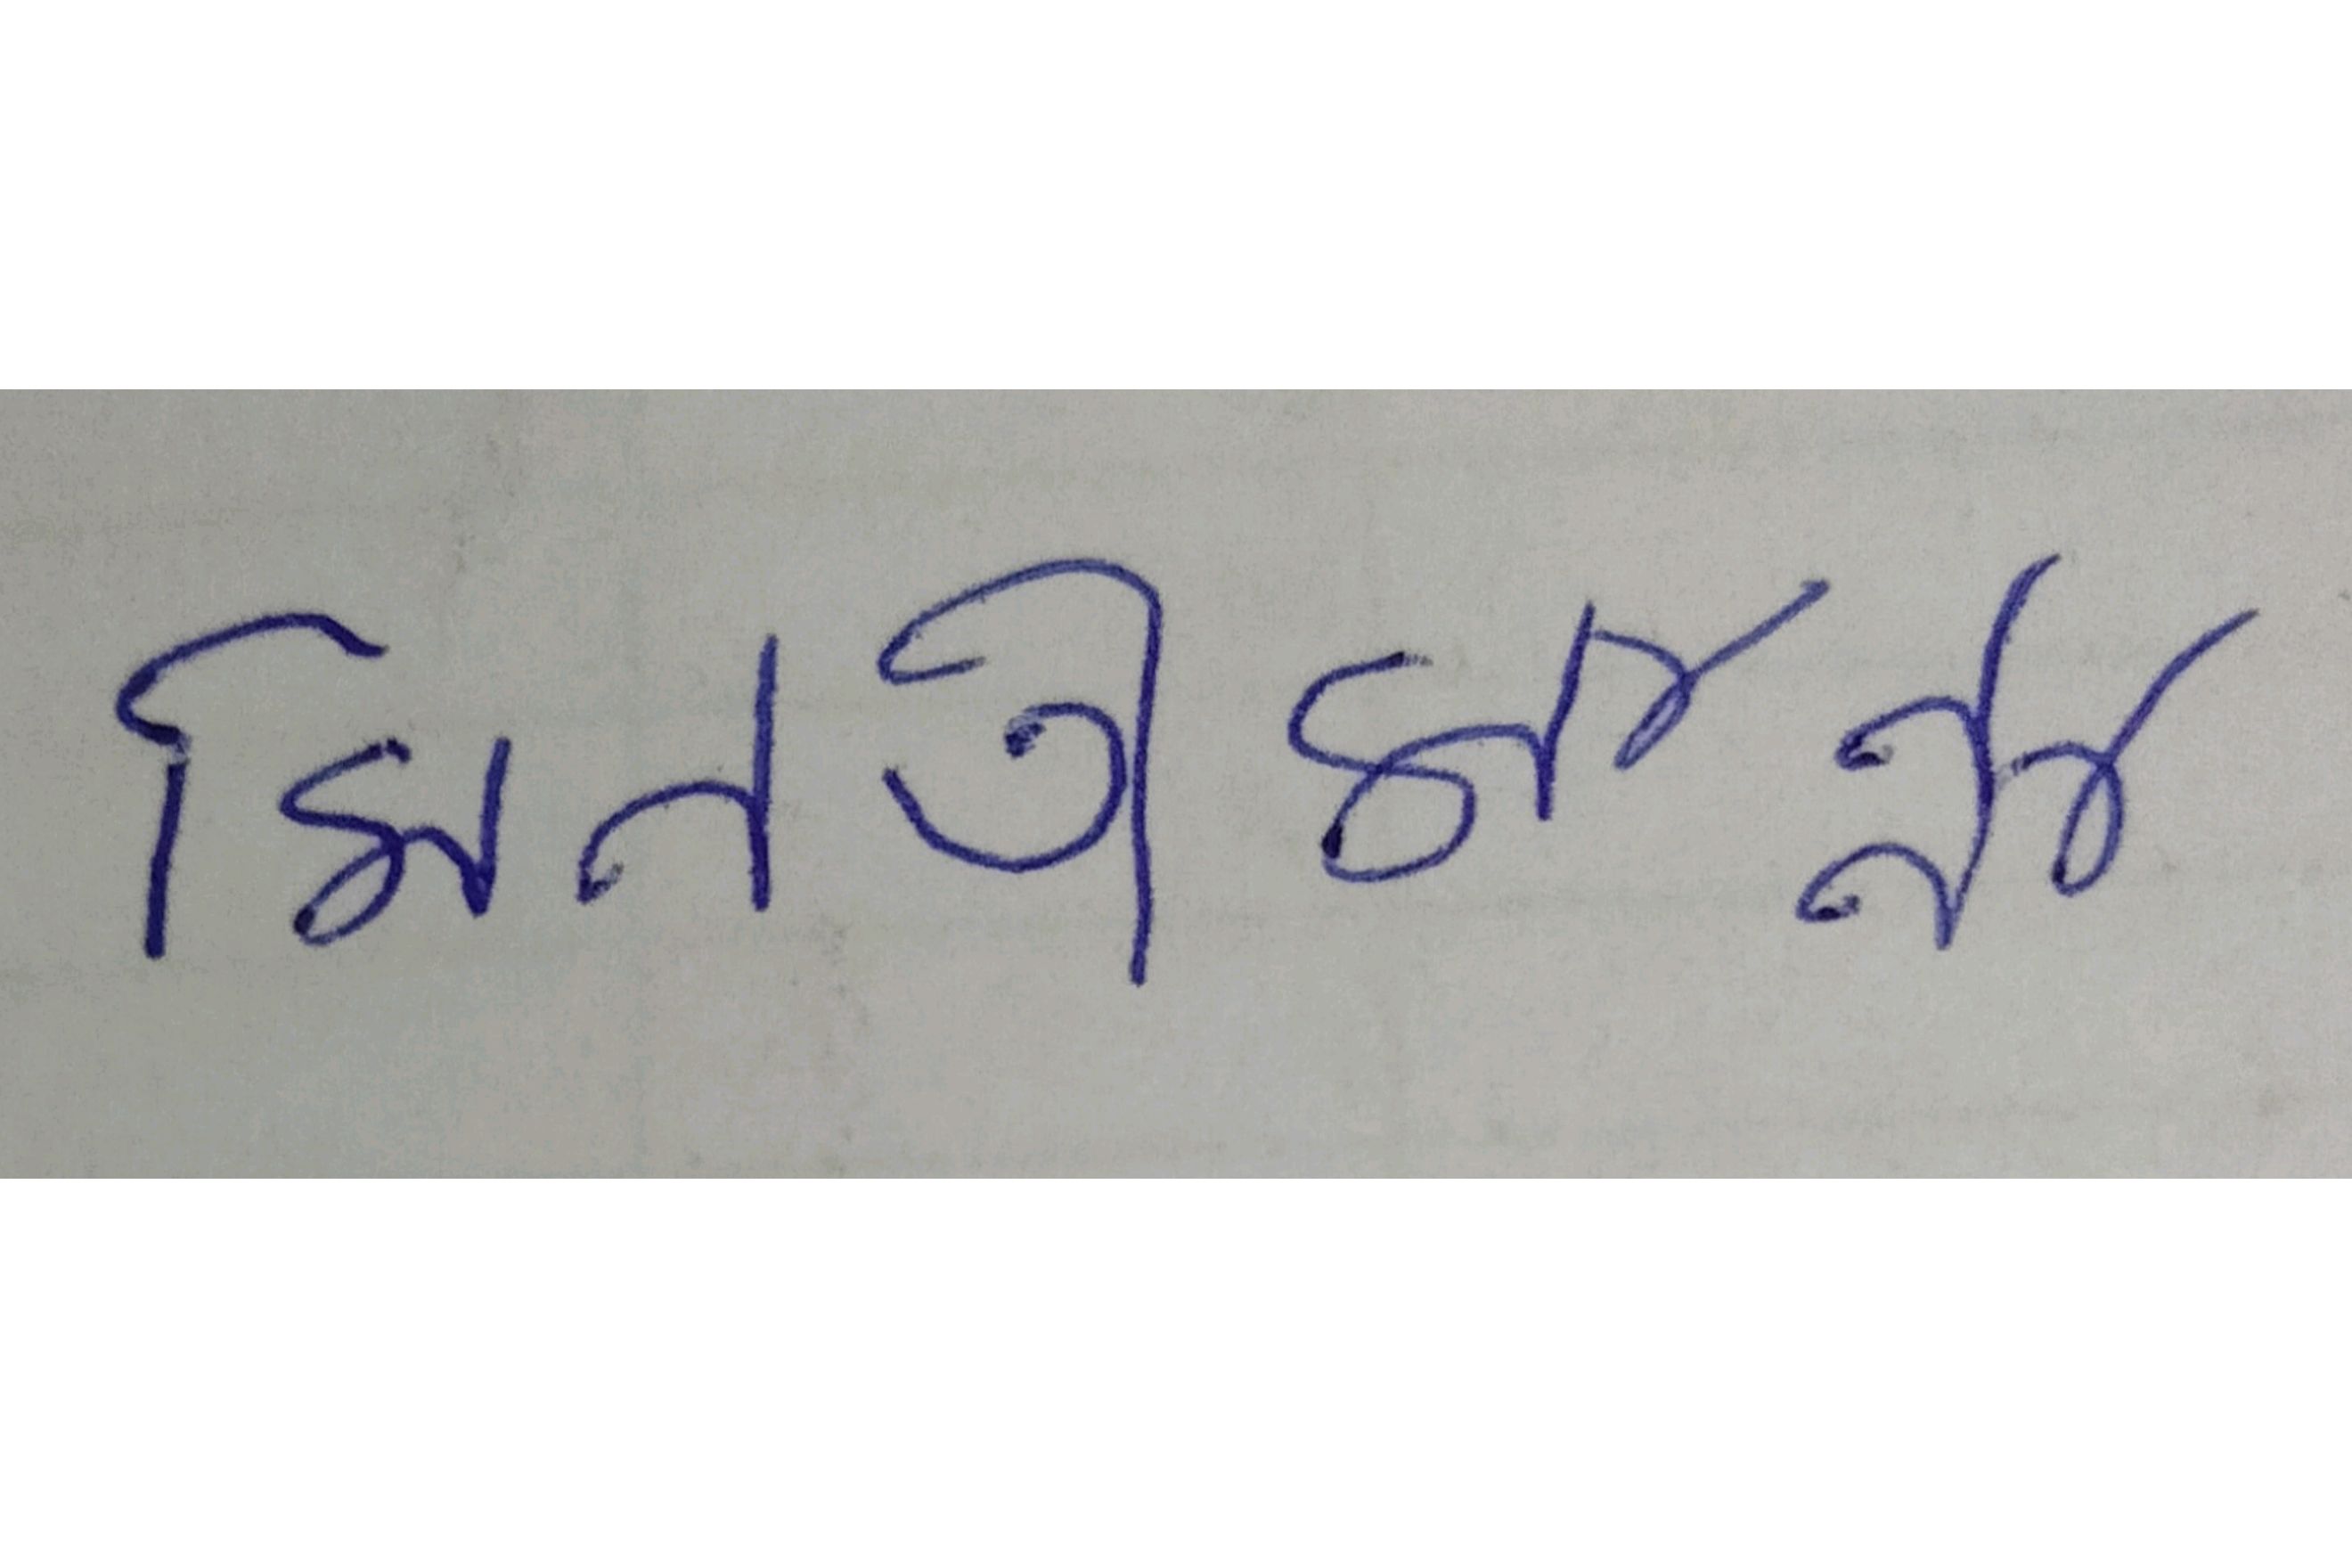 মিনতী মান্না